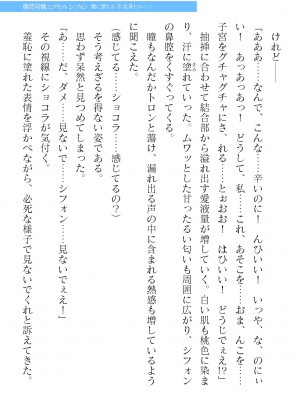 けれど――
「あああ……なんで、こんな……辛いのに！　んひいい！　いっや、な、のにぃい！　あっあっあっ！　どうして、私……これ、あそこを……おま、んこを……子宮をグチャグチャにさ、れる……とぉおお！　はひいい！　どうじでぇえ！？」
抽挿に合わせて結合部から溢れ出す愛液量が増していく。白い肌も桃色に染まり、汗に塗れていった。ムワッとした甘ったるい匂いも周囲に広がり、シフォンの鼻腔をくすぐってくる。
瞳もなんだかトロンと蕩け、漏れ出る声の中に含まれる熱感も増しているように聞こえた。
（感じてる……ショコラ……感じてるの？）
そう考えざるを得ない姿である。
思わず呆然と見つめてしまった。
「あ……だ、ダメ……見ないで……シフォン……見ないでぇえ！」
その視線にショコラが気付く。
羞恥に塗れた表情を浮かべながら、必死な様子で見ないでくれと訴えてきた。